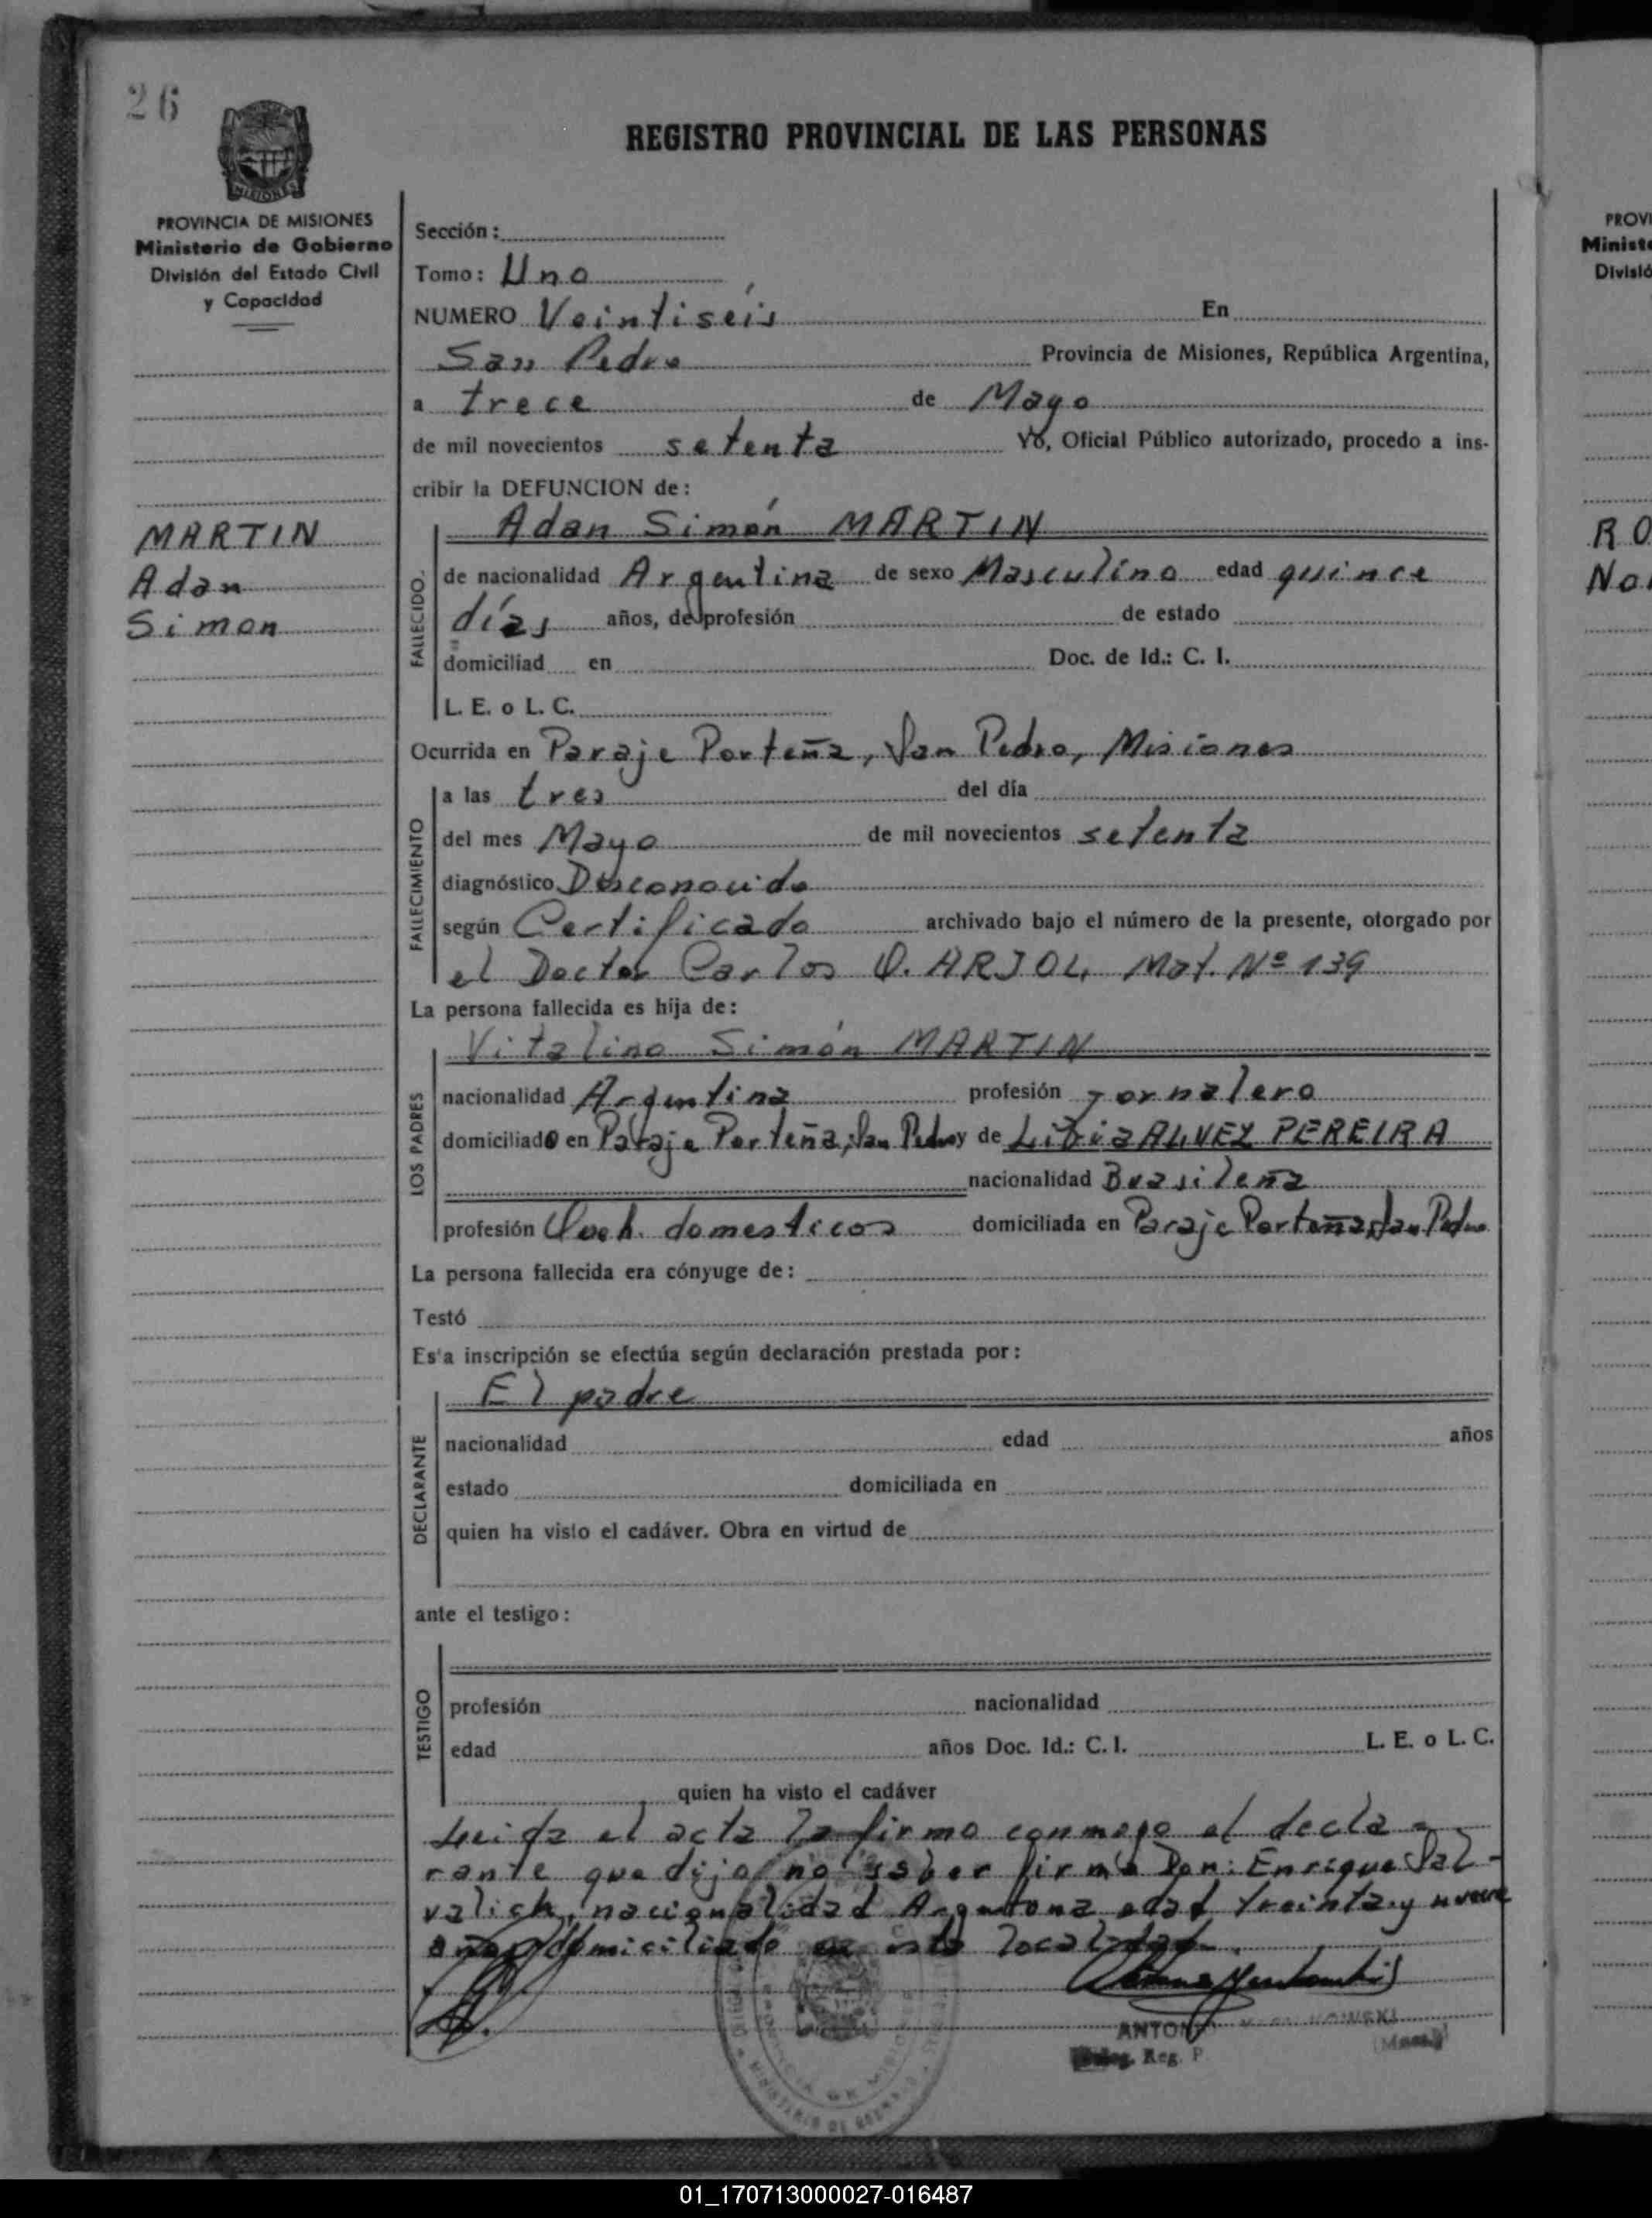 26
REGISTRO PROVINCIAL DE LAS PERSONAS
PROVINCIA DE MISIONES
Ministerio de Gobierno
División del Estado Civil
y Capacidad
MARTIN
Adan
Simon
Sección:
Tomo: Uno
NUMERO Veintiséis En
San Pedro Provincia de Misiones, República Argentina,
a trece de Mayo
de mil novecientos setenta Yo, Oficial Público autorizado, procedo a ins-
cribir la DEFUNCION de:
Adan Simón MARTIN
FALLECIDO
de nacionalidad Argentina de sexo Masculino edad quince
días años, de profesión de estado
domiciliad en Doc. de Id.: C. I.
L. E. o L. C.
Ocurrida en Paraje Porteña, San Pedro, Misiones
FALLECIMIENTO
a las tres del día
del mes Mayo de mil novecientos setenta
diagnóstico Desconocido
según Certificado archivado bajo el número de la presente, otorgado por
el Doctor Carlos O. ARJOL, Mat. Nº 139
La persona fallecida es hija de:
Vitalino Simón MARTIN
LOS PADRES
nacionalidad Argentina profesión Jornalero
domiciliado en Paraje Porteña, San Pedro y de ALVEZ PEREIRA
nacionalidad Brasileña
profesión domesticos domiciliada en Paraje Porteña San Pedro
La persona fallecida era cónyuge de:
Testó
Esta inscripción se efectúa según declaración prestada por:
El padre
DECLARANTE
nacionalidad edad años
estado domiciliada en
quien ha visto el cadáver. Obra en virtud de
ante el testigo:
TESTIGO
profesión nacionalidad
edad años Doc. Id.: C. I. L. E. o L. C.
quien ha visto el cadáver
Leida el acta la firmo conmigo el decla-
rante que dijo no saber firma Don: Enrique
nacionalidad Argentona edad treinta y nueve
domiciliado en esta localidad.
Reg. P.
PROVI
Ministe
Divisió
RO
No
01_170713000027-016487